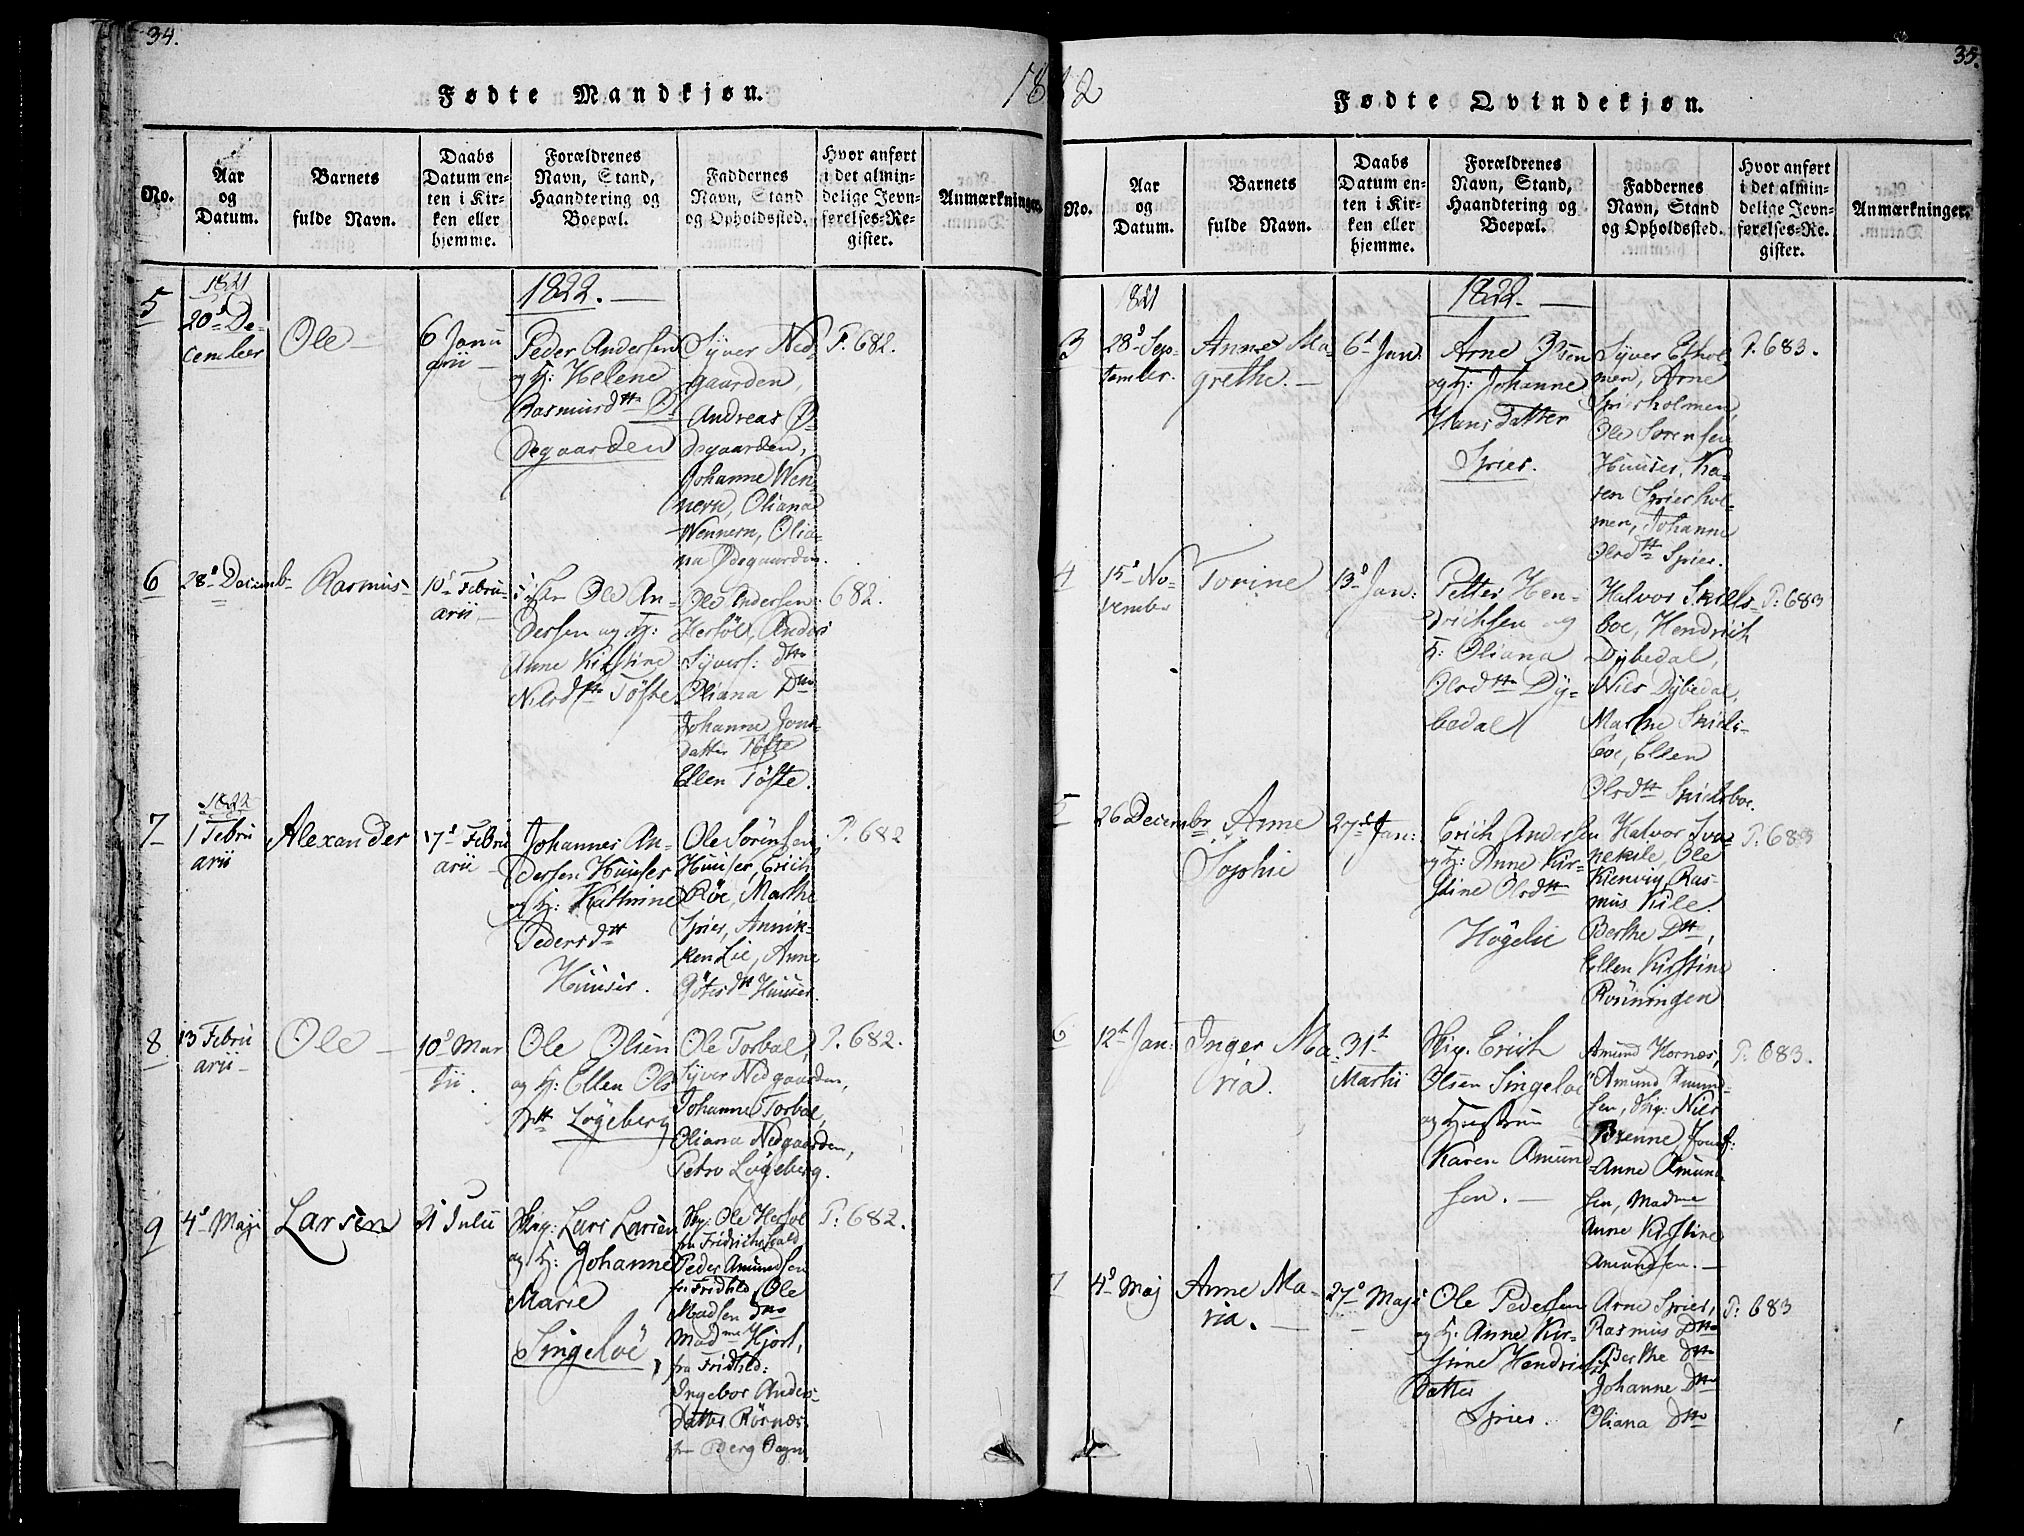 34.
Fødte Mandkjøn.
1822
No.
Aar
og
Datum.
Barnets
fulde Navn.
Daabs
Datum en-
ten i Kir-
ken eller
hjemme.
Forældrenes
Navn, Stand,
Haandtering og
Boepæl.
Faddernes
Navn, Stand
og Opholdssted.
Hvor anført
i det almin-
delige Jevn-
førelses-Re-
gister.
Anmærkninger.
1822.
5
1821
20d De-
cember
Ole
6 Janu
arii
Peder Andersen
og H: Helene
Rasmusdtt Ø-
degaarden
Syver Ned
gaarden,
Andreas Ø-
degaarden,
Johanne Wen-
nern, Oliana
Wennern, Olia-
na Ødegaarden.
P. 682.
6
28d Decemb
Rasmus
10d Febru-
arii
Ole An-
dersen og H:
Anne Kirstine
Nilsdtt Töfte
Ole Andersen
Herföl, Anders
Syvers: Dto
Oliana Dto
Johanne Jons
datter Töfte
Ellen Töfte.
682.
7
1822
1 Febru
arii
Alexander
17d Febru
arii
Johannes An-
dersen Huuser
og H: Kathrine
Pedersdtt
Huuser.
Ole Sörensen
Huuser, Erich
Röe, Marthe
Spier, Annik-
ken Lie, Anne
Götersdtt Huuser.
P: 682
8
13 Febru
arii
Ole
10d Mar
tii
Ole Olsen
og H: Ellen Ols
dtt Lögeberg
Ole Torbal,
Syver Nedgaarden,
Johanne Torbal,
Oliana Nedgaarden,
Petro Lögeberg.
P. 682.
9
4d Maji
Larsen
21 Julii
Skip: Lars Larsen
og H: Johanne
Marie
Singelöe,
Skp: Ole Herföl
fra Fridrichshald
Peder Amundsen
fra Fridhld, Ole
Madsen Dto
Madme Hjort,
fra Fridhld:
Ingebor Anders-
datter Rörnæs
fra Berg Sogn
P: 682.
35.
Fødte Qvindekjøn.
No.
Aar
og
Datum.
Barnets
fulde Navn.
Daabs
Datum en-
ten i Kir-
ken eller
hjemme.
Forældrenes
Navn, Stand,
Haandtering og
Boepæl.
Faddernes
Navn, Stand
og Opholdssted.
Hvor anført
i det almin-
delige Jevn-
førelses-Re-
gister.
Anmærkninger.
1822.
3
1821
28d Sep-
tember.
Anne Ma-
grethe.
6t Jan
Arne Olsen
og H: Johanne
Hans datter
Spier.
Syver Eshol
men, Arne
Spiersholmen,
Ole Sörensen
Huuser, Ka-
ren Spiershol-
men, Johanne
Olsdtt Spier.
P. 683.
4
15d No-
vember
Torine
13d Jan:
Petter Hen-
drichsen og
H: Oliana
Olsdtt Dy-
bedal
Halvor Skiels-
boe, Hendrich
Dybedal,
Niels Dybedal,
Marthe Skiels-
boe, Ellen
Olsdtt Skielsboe.
P: 683
5
26 Decembr
Anne
Sophie
27d Jan:
Erich Andersen
og H: Anne Kir-
stine Olsdtt
Högelie
Halvor Sva-
nekile, Ole
Kienvig, Ras-
mus Kile.
Berthe Dto,
Ellen Kirstine
Rönningen
P: 683
6
12t Jan:
Inger Ma-
ria.
31t
Martii
Skip. Erich
Olsen Singeløe
og Hustrue
Karen Amund
sen.
Amund Hornæs,
Amund Amund-
sen, Skip: Niels
Brenne, Jomf:
Anne Amund
sen, Madme
Anne Kirstine
Amundsen.
P. 683.
7
4d Maj
Anne Ma-
ria.
27d Maji
Ole Pedersen
og H: Anne Kir-
stine Hendrichs
datter
Spier.
Arne Spier,
Rasmus Dto
Berthe Dto
Johanne Dto
Oliana Dto
P: 683